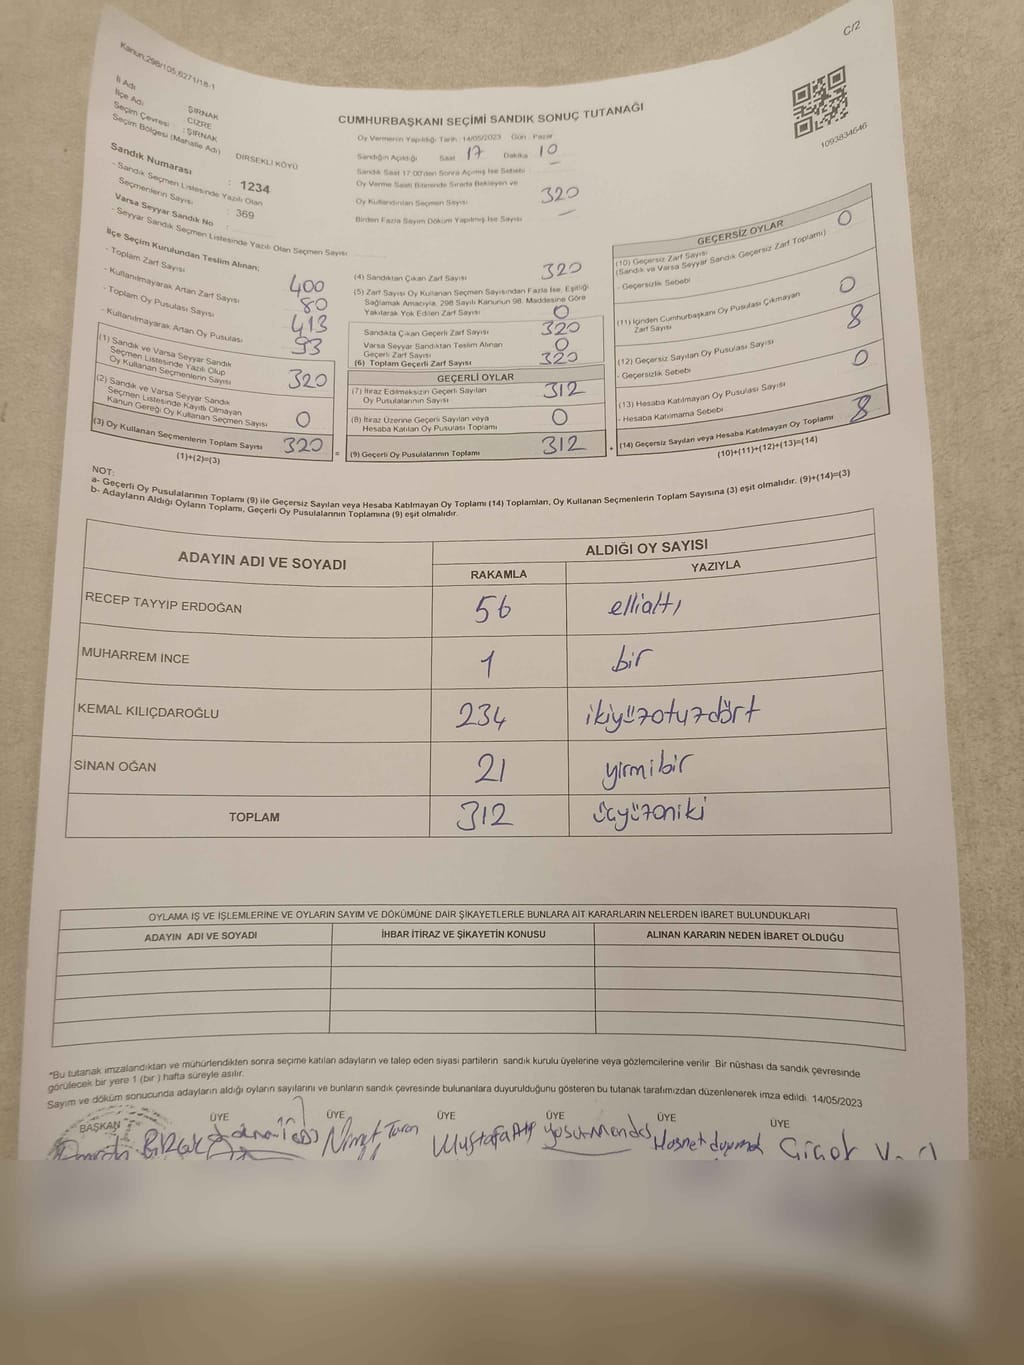 C/2
Kanun:298/105,6271/18-1
İl Adı : ŞIRNAK
İlçe Adı : CİZRE
Seçim Çevresi : ŞIRNAK
Seçim Bölgesi (Mahalle Adı) DİRSEKLİ KÖYÜ
Sandık Numarası : 1234
- Sandık Seçmen Listesinde Yazılı Olan
Seçmenlerin Sayısı : 369
Varsa Seyyar Sandık No :
- Seyyar Sandık Seçmen Listesinde Yazılı Olan Seçmen Sayısı :
CUMHURBAŞKANI SEÇİMİ SANDIK SONUÇ TUTANAĞI
Oy Vermenin Yapıldığı Tarih: 14/05/2023 Gün: Pazar
Sandığın Açıldığı Saat 17 Dakika 10
Sandık Saat 17:00'den Sonra Açılmış İse Sebebi : —
Oy Verme Saati Bitiminde Sırada Bekleyen ve
Oy Kullandırılan Seçmen Sayısı 320
Birden Fazla Sayım Döküm Yapılmış İse Sayısı —
1093834646
İlçe Seçim Kurulundan Teslim Alınan;
- Toplam Zarf Sayısı 400
- Kullanılmayarak Artan Zarf Sayısı 80
- Toplam Oy Pusulası Sayısı 413
- Kullanılmayarak Artan Oy Pusulası 93
(1) Sandık ve Varsa Seyyar Sandık
Seçmen Listesinde Yazılı Olup
Oy Kullanan Seçmenlerin Sayısı 320
(2) Sandık ve Varsa Seyyar Sandık
Seçmen Listesinde Kayıtlı Olmayan
Kanun Gereği Oy Kullanan Seçmen Sayısı 0
(3) Oy Kullanan Seçmenlerin Toplam Sayısı 320
(1)+(2)=(3)
(4) Sandıktan Çıkan Zarf Sayısı 320
(5) Zarf Sayısı Oy Kullanan Seçmen Sayısından Fazla İse, Eşitliği
Sağlamak Amacıyla, 298 Sayılı Kanunun 98. Maddesine Göre
Yakılarak Yok Edilen Zarf Sayısı 0
Sandıkta Çıkan Geçerli Zarf Sayısı 320
Varsa Seyyar Sandıktan Teslim Alınan
Geçerli Zarf Sayısı 0
(6) Toplam Geçerli Zarf Sayısı 320
GEÇERLİ OYLAR
(7) İtiraz Edilmeksizin Geçerli Sayılan
Oy Pusulalarının Sayısı 312
(8) İtiraz Üzerine Geçerli Sayılan veya
Hesaba Katılan Oy Pusulası Toplamı 0
= (9) Geçerli Oy Pusulalarının Toplamı 312
GEÇERSİZ OYLAR
(10) Geçersiz Zarf Sayısı
(Sandık ve Varsa Seyyar Sandık Geçersiz Zarf Toplamı) 0
- Geçersizlik Sebebi
(11) İçinden Cumhurbaşkanı Oy Pusulası Çıkmayan
Zarf Sayısı 0
(12) Geçersiz Sayılan Oy Pusulası Sayısı 8
- Geçersizlik Sebebi
(13) Hesaba Katılmayan Oy Pusulası Sayısı 0
- Hesaba Katılmama Sebebi
+ (14) Geçersiz Sayılan veya Hesaba Katılmayan Oy Toplamı 8
(10)+(11)+(12)+(13)=(14)
NOT:
a- Geçerli Oy Pusulalarının Toplamı (9) ile Geçersiz Sayılan veya Hesaba Katılmayan Oy Toplamı (14) Toplamları, Oy Kullanan Seçmenlerin Toplam Sayısına (3) eşit olmalıdır. (9)+(14)=(3)
b- Adayların Aldığı Oyların Toplamı, Geçerli Oy Pusulalarının Toplamına (9) eşit olmalıdır.
ADAYIN ADI VE SOYADI ALDIĞI OY SAYISI
RAKAMLA YAZIYLA
RECEP TAYYİP ERDOĞAN 56 ellialtı
MUHARREM İNCE 1 bir
KEMAL KILIÇDAROĞLU 234 ikiyüzotuzdört
SİNAN OĞAN 21 yirmibir
TOPLAM 312 üçyüzoniki
OYLAMA İŞ VE İŞLEMLERİNE VE OYLARIN SAYIM VE DÖKÜMÜNE DAİR ŞİKAYETLERLE BUNLARA AİT KARARLARIN NELERDEN İBARET BULUNDUKLARI
ADAYIN ADI VE SOYADI İHBAR İTİRAZ VE ŞİKAYETİN KONUSU ALINAN KARARIN NEDEN İBARET OLDUĞU
"Bu tutanak imzalandıktan ve mühürlendikten sonra seçime katılan adayların ve talep eden siyasi partilerin sandık kurulu üyelerine veya gözlemcilerine verilir. Bir nüshası da sandık çevresinde
görülecek bir yere 1 (bir) hafta süreyle asılır.
Sayım ve döküm sonucunda adayların aldığı oyların sayılarını ve bunların sandık çevresinde bulunanlara duyurulduğunu gösteren bu tutanak tarafımızdan düzenlenerek imza edildi. 14/05/2023
BAŞKAN ÜYE ÜYE ÜYE ÜYE ÜYE ÜYE
Turan Mustafa Alp